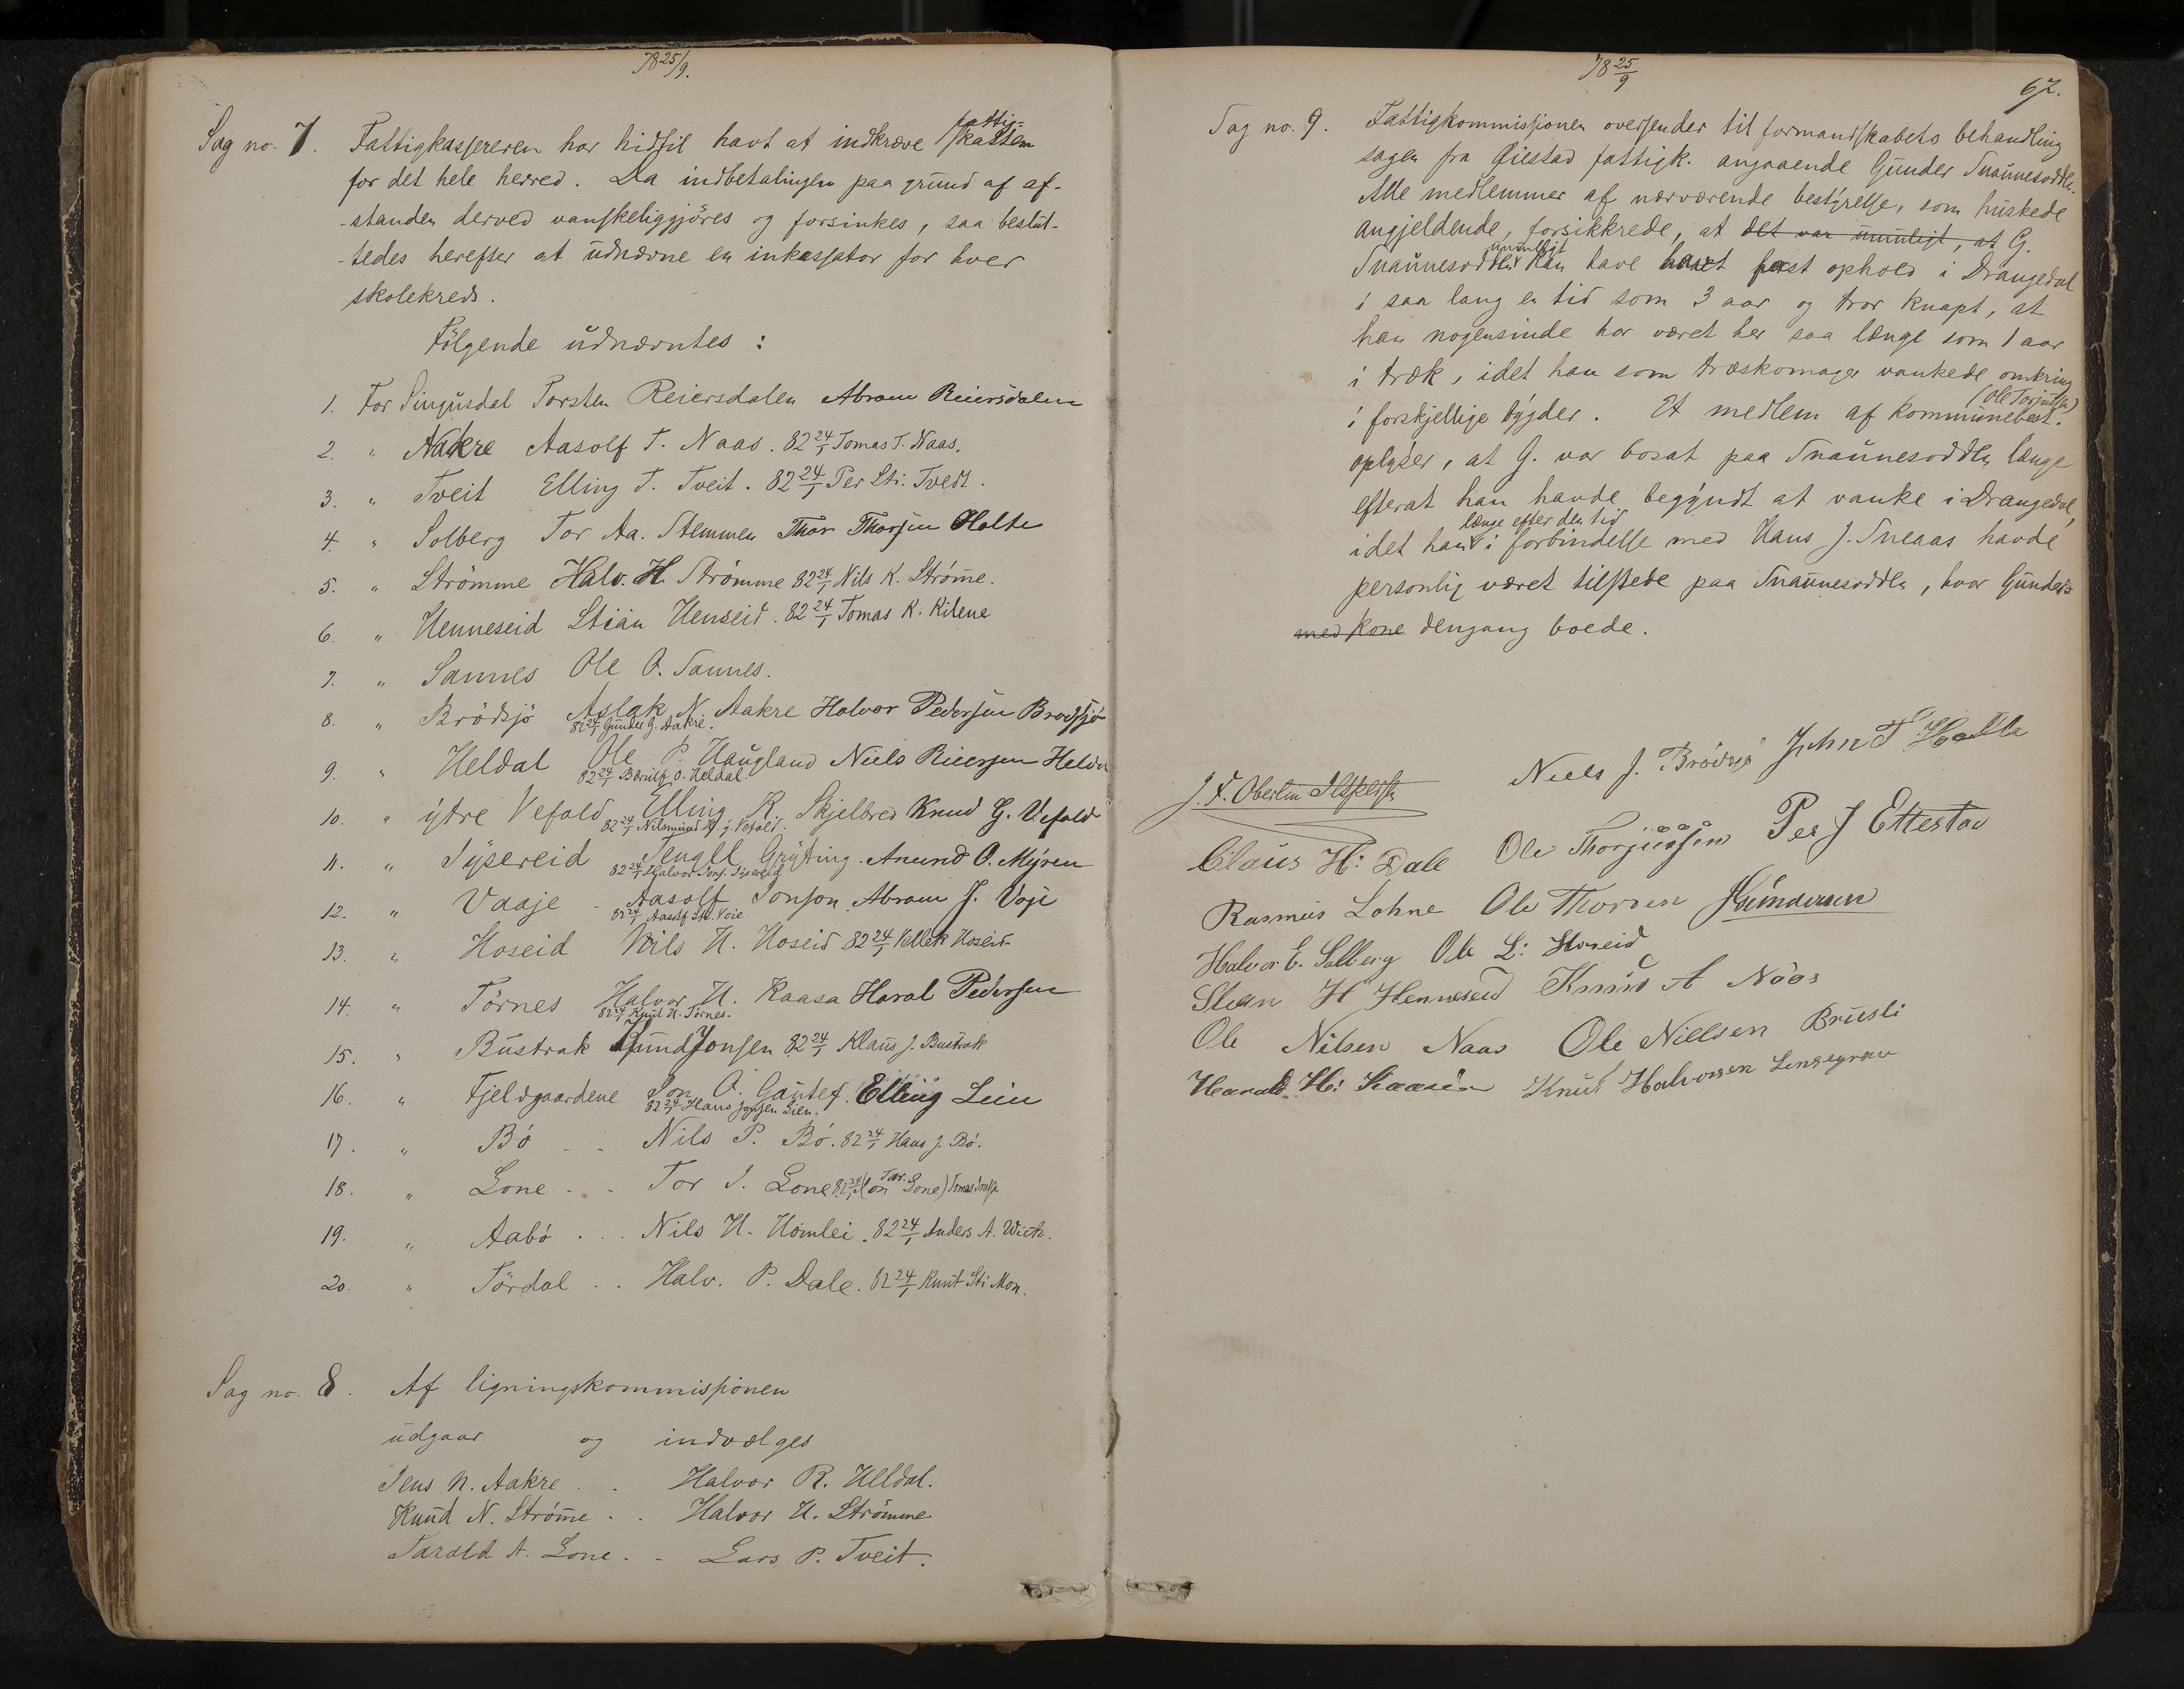 78 25/9.
Sag no. 7. Fattigkassereren har hidtil havt at indkræve fattig-skatten
for det hele herred. Da indbetalingen paa grund af af-
-standen derved vanskeliggjöres og forsinkes, saa beslut-
-tedes herefter at udnævne en inkassator for hver
skolekreds.
Fölgende udnævntes:
1. For Singusdal Torsten Reiersdalen Abram Reiersdalen
2. " Nakre Aasolf T. Naas. 82 24/1 Tomas T. Naas.
3. " Tveit Elling T. Tveit. 82 24/1 Per Sti. Tvedt.
4. " Solberg Tor Aa. Stemmen Thor Thorsen Holte
5. " Strömme Halv. H. Strömme 82 24/1 Nils K. Strömme.
6. " Henneseid Stian Henseid. 82 24/1 Tomas K. Kilene
7. " Sannes Ole O. Sannes.
8. " Brödsjö Aslak N. Aakre Halvor Pedersen Brodsjö
82 24/1 Gunder G. Aakre.
9. " Heldal Ole P. Haugland Niels Reiersen Heldal
82 24/1 O. Heldal.
10. " ytre Vefald Elling K. Skjelbred Knud G. Vefald
82 24/1 y. Vefald.
11. " Tysereid Tengel Gryting. Anund O. Myren
82 24/1 Halvor Tysereid
12. " Vaaje - Aasolf Jonson. Abram J. Voje
82 24/1 Aasolf Voie
13. " Hoseid Nils H. Hoseid 82 24/1 Vellek Hoseid
14. " Törnes Halvor H. Kaasa Haral Pedersen
82 24/1 Knut H. Törnes.
15. " Bustrak Gund Jonsen 82 24/1 Klaus J. Bustrak
16. " Fjeldgaardene Jon O. Gautef. Elling Lien
82 24/1 Hans Jonsen Lien.
17. " Bö - - Nils P. Bö. 82 24/1 Hans J. Bö.
18. " Lone - - Tor J. Lone 82 24/1 (Jon Tar. Lone) Tomas
19. " Aabö . . . Nils H. Homlei. 82 24/1 Anders A.
20. " Tördal . . Halv. P. Dale. 82 24/1 Knut Sti Mon.
Sag no. 8. Af ligningskommissionen
udgaar og indvælges
Jens N. Aakre . . Halvor R. Heldal.
Knud N. Strömme . . Halvor H. Strömme
Tarald A. Lone. - Lars P. Tveit.
78 25/9
67.
Sag no. 9. Fattigkommissionen oversender til formandskabets behandling
sagen fra Øiestad fattigk. angaaende Gunder Snaunesodden.
Alle medlemmer af nærværende bestyrelse, som huskede
angjeldende, forsikkrede, at det var umuligt, at G.
Snaunesodden umuligt kan have havt fast ophold i Drangedal
i saa lang en tid som 3 aar og tror knapt, at
han nogensinde har været her saa længe som 1 aar
i træk, idet han som træskomager vankede omkring
i forskjellige bygder. Et medlem af kommunebest. (Ole Torjussen)
oplyser, at G. var bosat paa Snaunesodden længe
efterat han havde begyndt at vanke i Drangedal,
idet han længe efter den tid i forbindelse med Hans J. Sneaas havde
personlig været tilstede paa Snaunesodden, hvor Gunder
med kone dengang boede.
Niels J. Brödsjö John T Holte
J. F. Oberlin
Claus H: Dale Ole Thorjussen Per J Ettestad
Rasmus Lohne Ole Thorsen Gundersen
Halvor E. Solberg Ole L: Hoseid
Stian H Henneseid Knud A Naas
Ole Nilsen Naas Ole Nielsen Brusli
Harald. H: Kaasa Knut Halvorsen